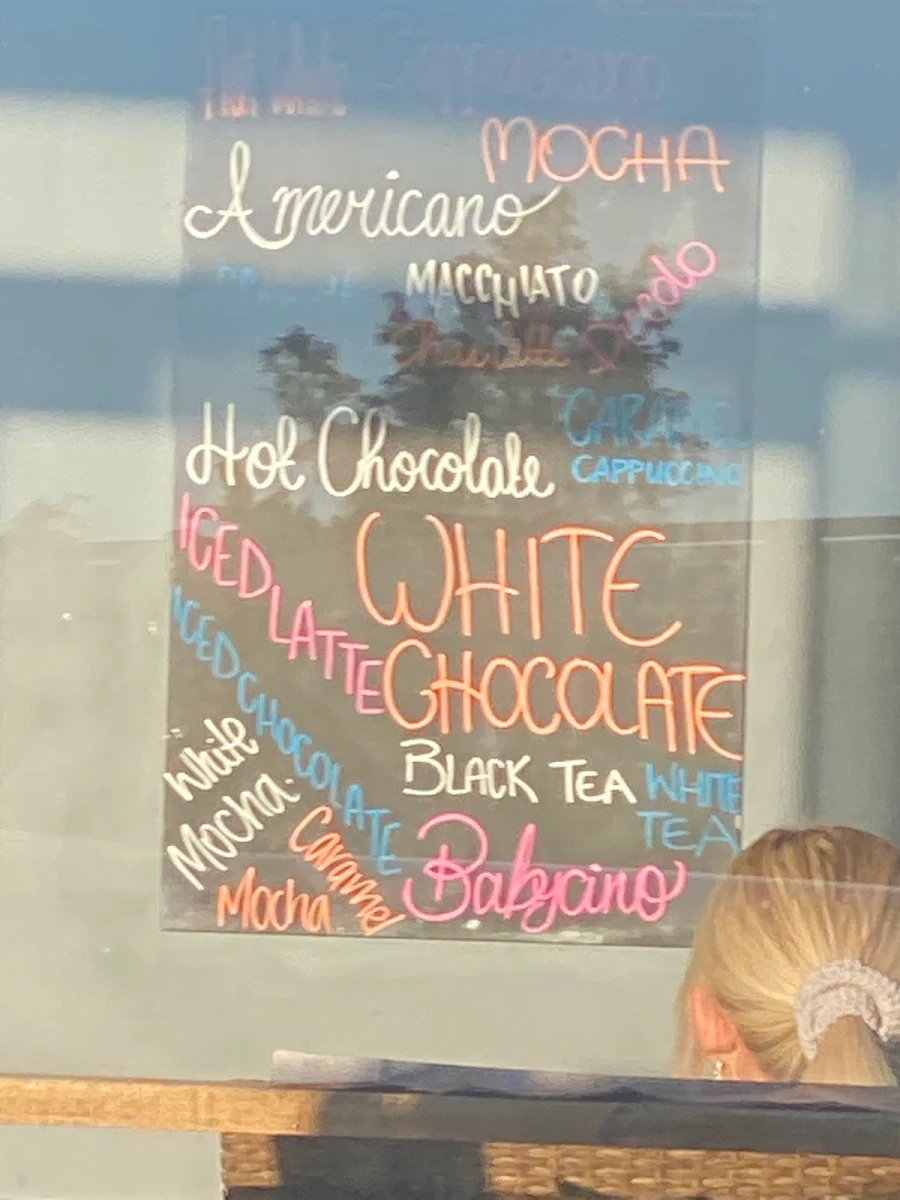 Flat White
Cappuccino
MOCHA
Americano
MACCHIATO
Hot Chocolate
CARAMEL
CAPPUCCINO
ICED LATTE
WHITE
CHOCOLATE
ICED CHOCOLATE
White
Mocha
BLACK TEA
WHITE
TEA
Caramel
Mocha
Babycino